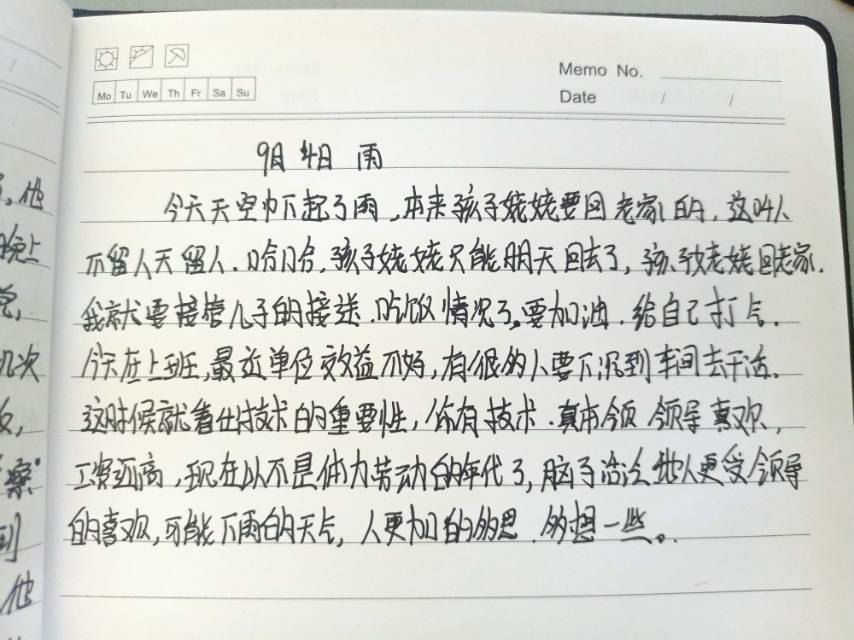 Memo No.
Mo Tu We Th Fr Sa Su
Date / /
9月4日 雨
今天天空中下起了雨,本来孩子姥姥要回老家的,这叫人
不留人天留人.哈哈,孩子姥姥只能明天回去了,孩子姥姥回老家.
我就要接管儿子的接送.吃饭情况了,要加油.给自己打气.
今天在上班,最近单位效益不好,有很多人要下沉到车间去干活.
这时候就看出技术的重要性,你有技术.真本领 领导喜欢,
工资还高,现在以不是体力劳动的年代了,脑子活泛 他人更受领导
的喜欢,可能下雨的天气,人更加的多思.多想一些。
,他
晚上
完,
几次
效,
察"
到
他